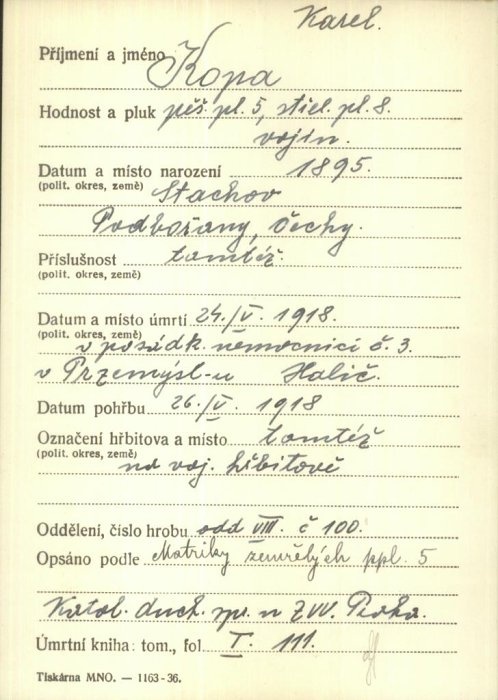 Karel.
Příjmení a jméno Kopa
Hodnost a pluk pěš. pl. 5, střel. pl. 8.
vojín.
Datum a místo narození 1895.
(polit. okres, země) Stachov
Podbořany, Čechy.
Příslušnost tamtéž.
(polit. okres, země)
Datum a místo úmrtí 24./V. 1918.
(polit. okres, země) v posádk. nemocnici č. 3.
v Przemýsl-u Halič.
Datum pohřbu 26./V. 1918
Označení hřbitova a místo tamtéž
(polit. okres, země) na voj. hřbitově
Oddělení, číslo hrobu odd VIII. č 100.
Opsáno podle Matriky zemřelých ppl. 5
Katol. duch. sp. u ZVV. Praha.
Úmrtní kniha: tom., fol I. 111.
Tiskárna MNO. — 1163-36.